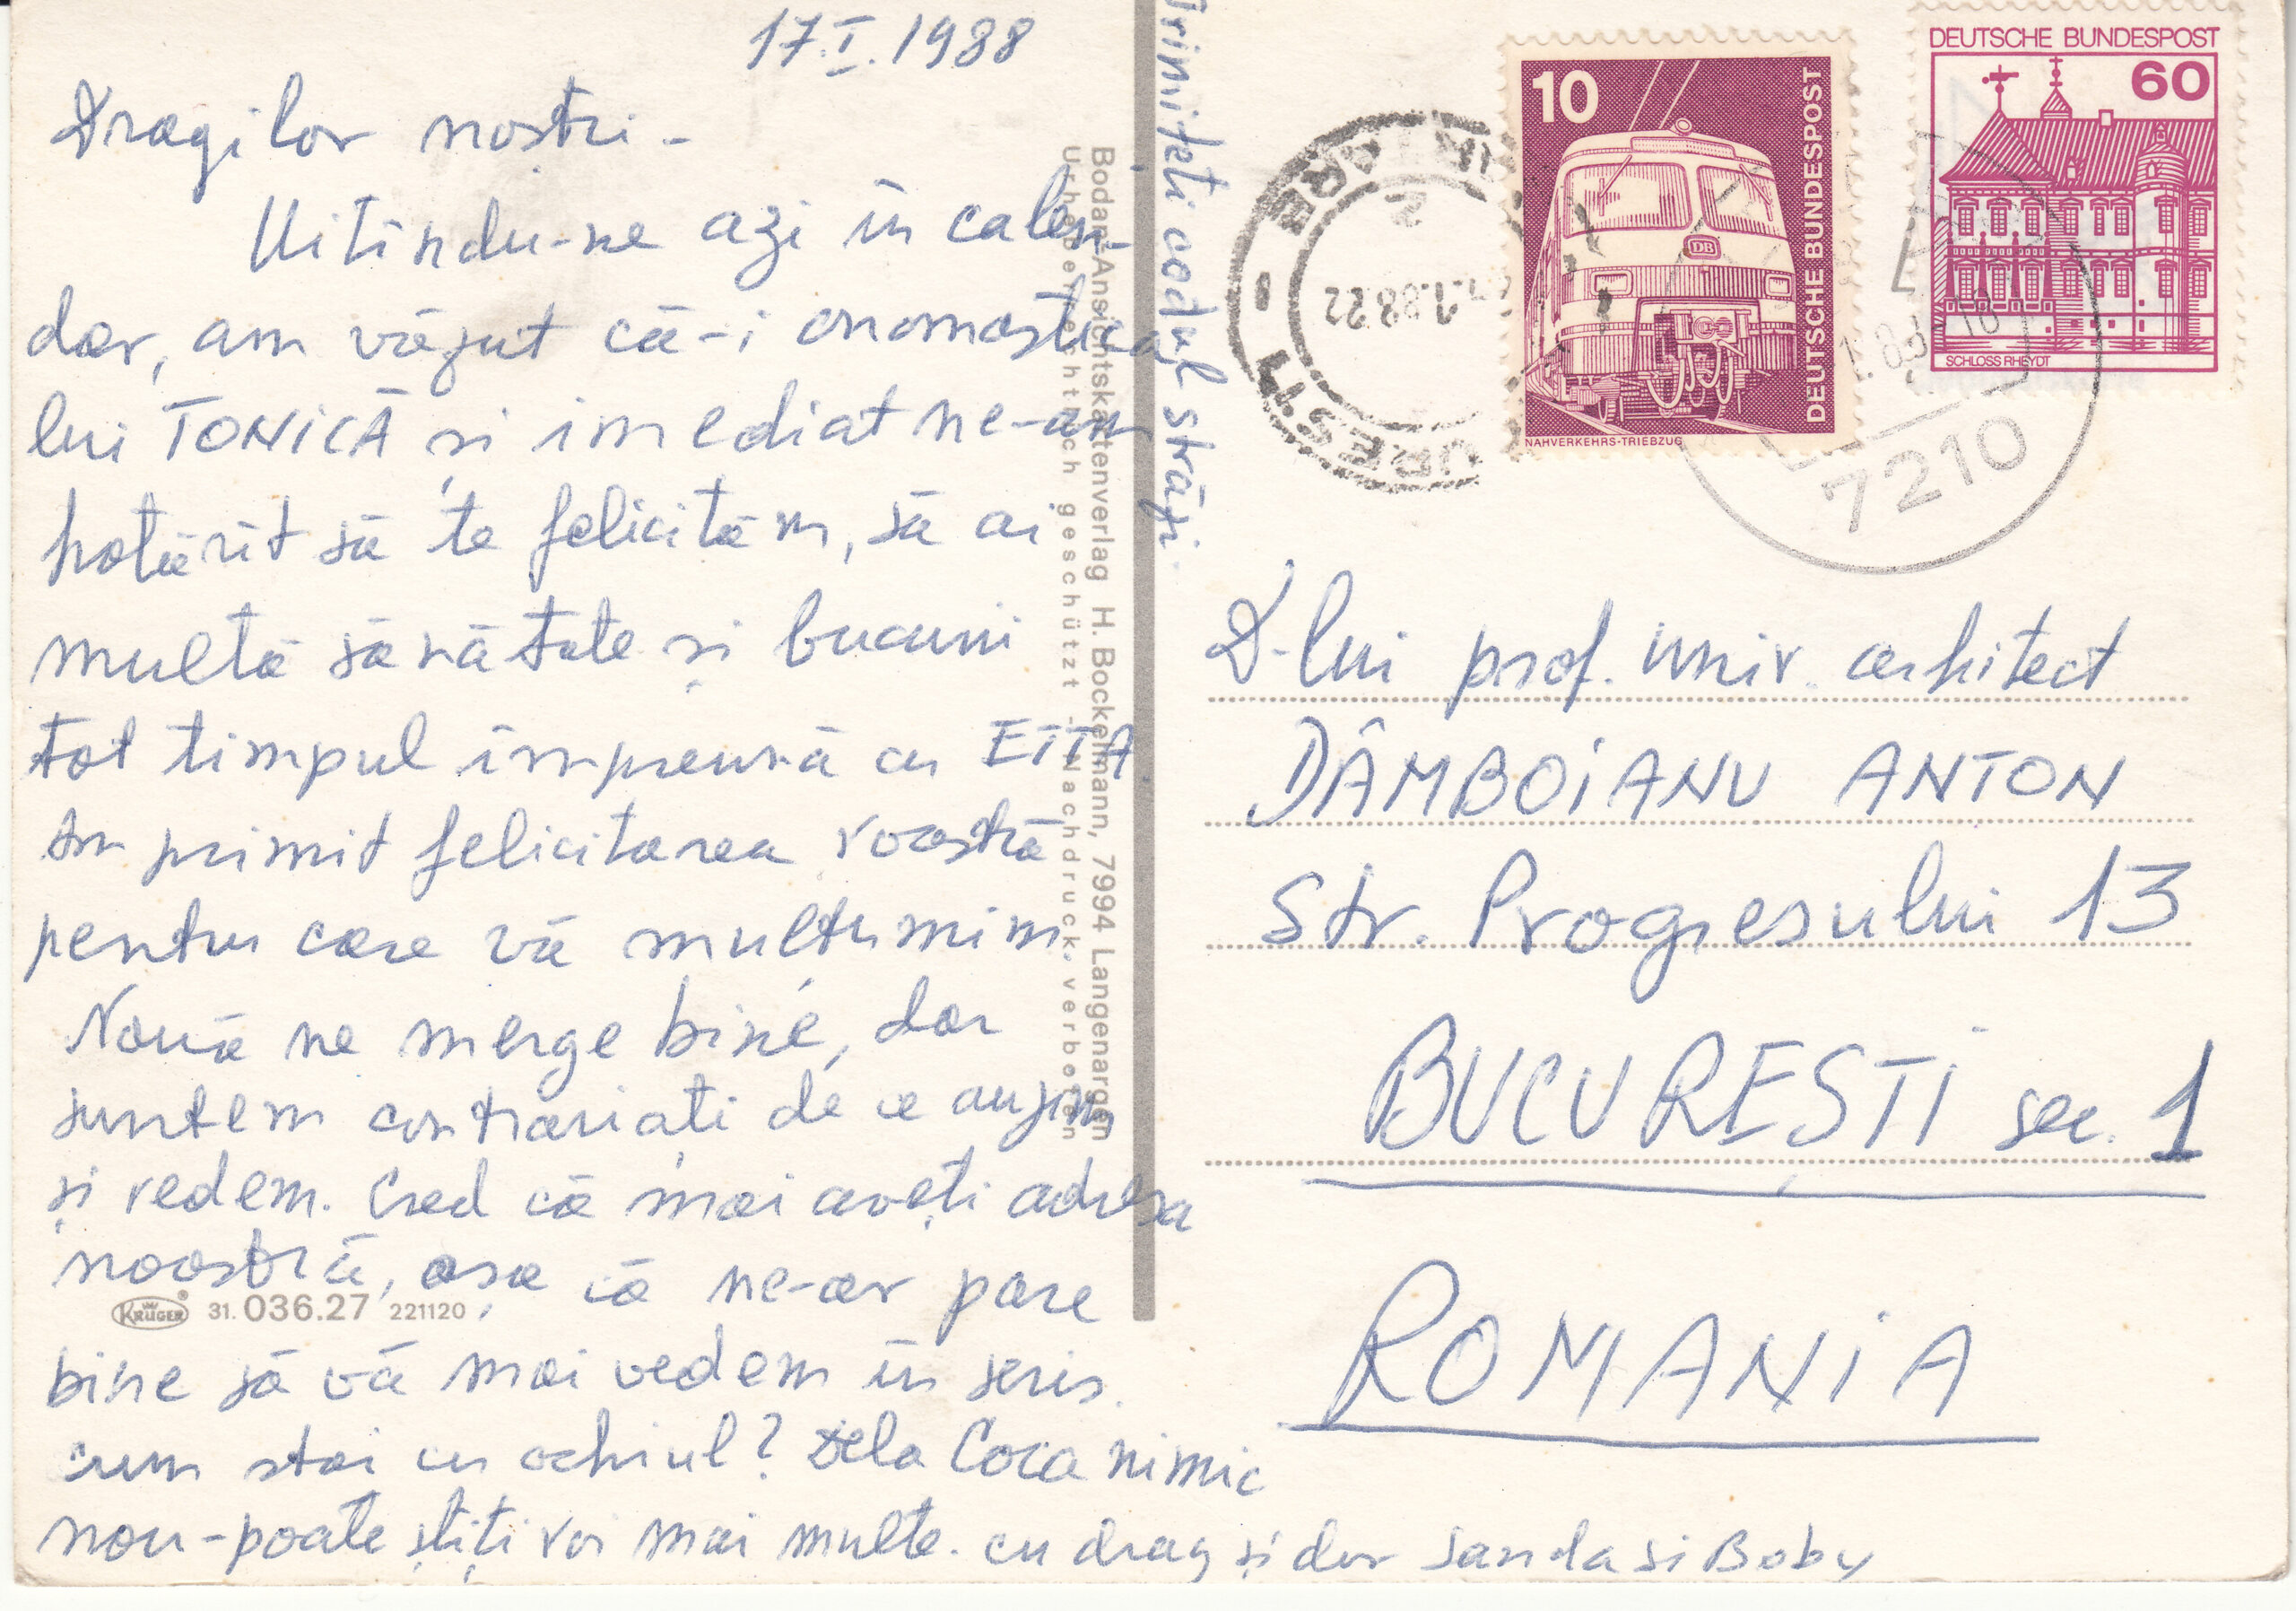 17.I.1988
Dragilor noștri -
Uitîndu-ne azi în calen-
dar, am văzut că-i onomastica
lui TONICĂ și imediat ne-am
hotărît să te felicităm, să ai
multă sănătate și bucurii
tot timpul împreună cu ETTA.
Am primit felicitarea voastră
pentru care vă mulțumim
Nouă ne merge bine, dar
suntem contrariați de ce auzim
și vedem. Cred că mai aveți adresa
noastră, așa că ne-ar pare
bine să vă mai vedem în scris.
cum stai cu ochiul? Dela Coca nimic
nou-poate știți voi mai multe. cu drag și dor Sanda si Boby
Trimiteti codul străzi.
Bodan-Ansichtskartenverlag H. Bockelmann, 7994 Langenargen
Urheberrechtlich geschützt - Nachdruck verboten
KRÜGER® 31.036.27 221120
10
DEUTSCHE BUNDESPOST
DB
NAHVERKEHRS-TRIEBZUG
DEUTSCHE BUNDESPOST
60
SCHLOSS RHEYDT
7210
D-lui prof. univ. arhitect
DÂMBOIANU ANTON
Str. Progresului 13
BUCUREȘTI sec. 1
ROMANIA